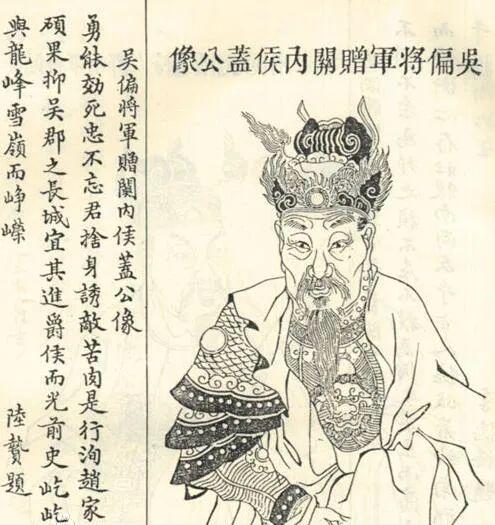 吳偏将軍贈關內侯蓋公像
吴偏將軍贈関内侯蓋公像
勇能効死忠不忘君捨身誘敵苦肉是行洵趙家
碩果抑吴郡之長城宜其進爵侯而光前史屹屹
與龍峰雪嶺而崢嶸
陸贄題